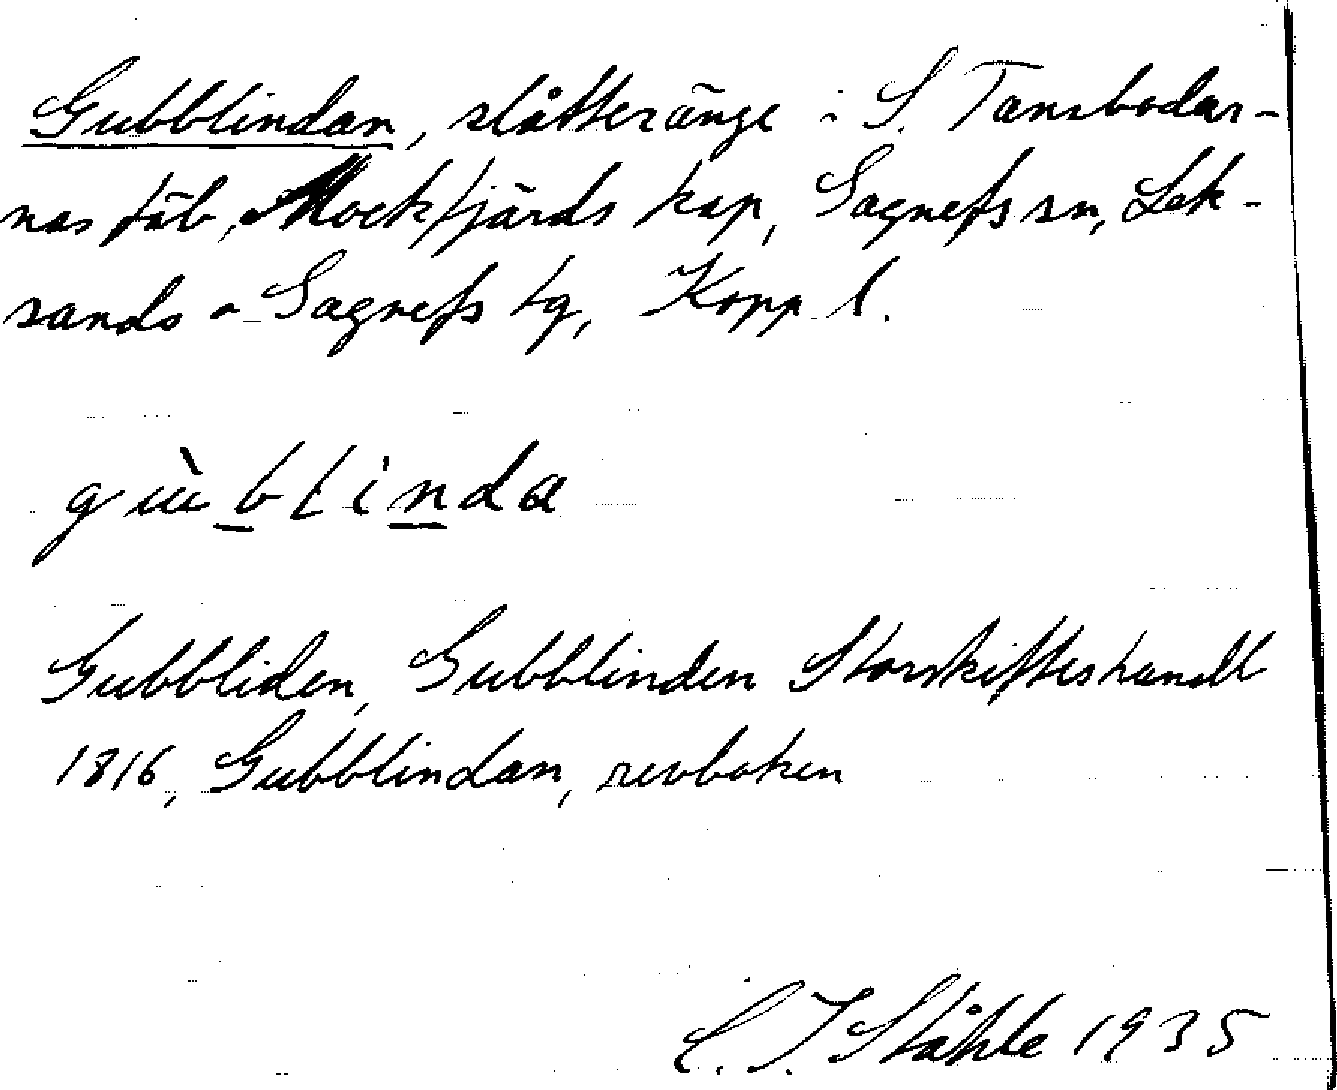 Gubblindan, slåtteränge i S. Tansbodar-
nas fäb, Mockfjärds kap, Gagnefs sn, Lek-
sands o Gagnefs tg, Kopp l.
güblinda
Gubbliden, Gubblinden Storskifteshandl
1816, Gubblindan, revboken
C. I. Ståhle 1935